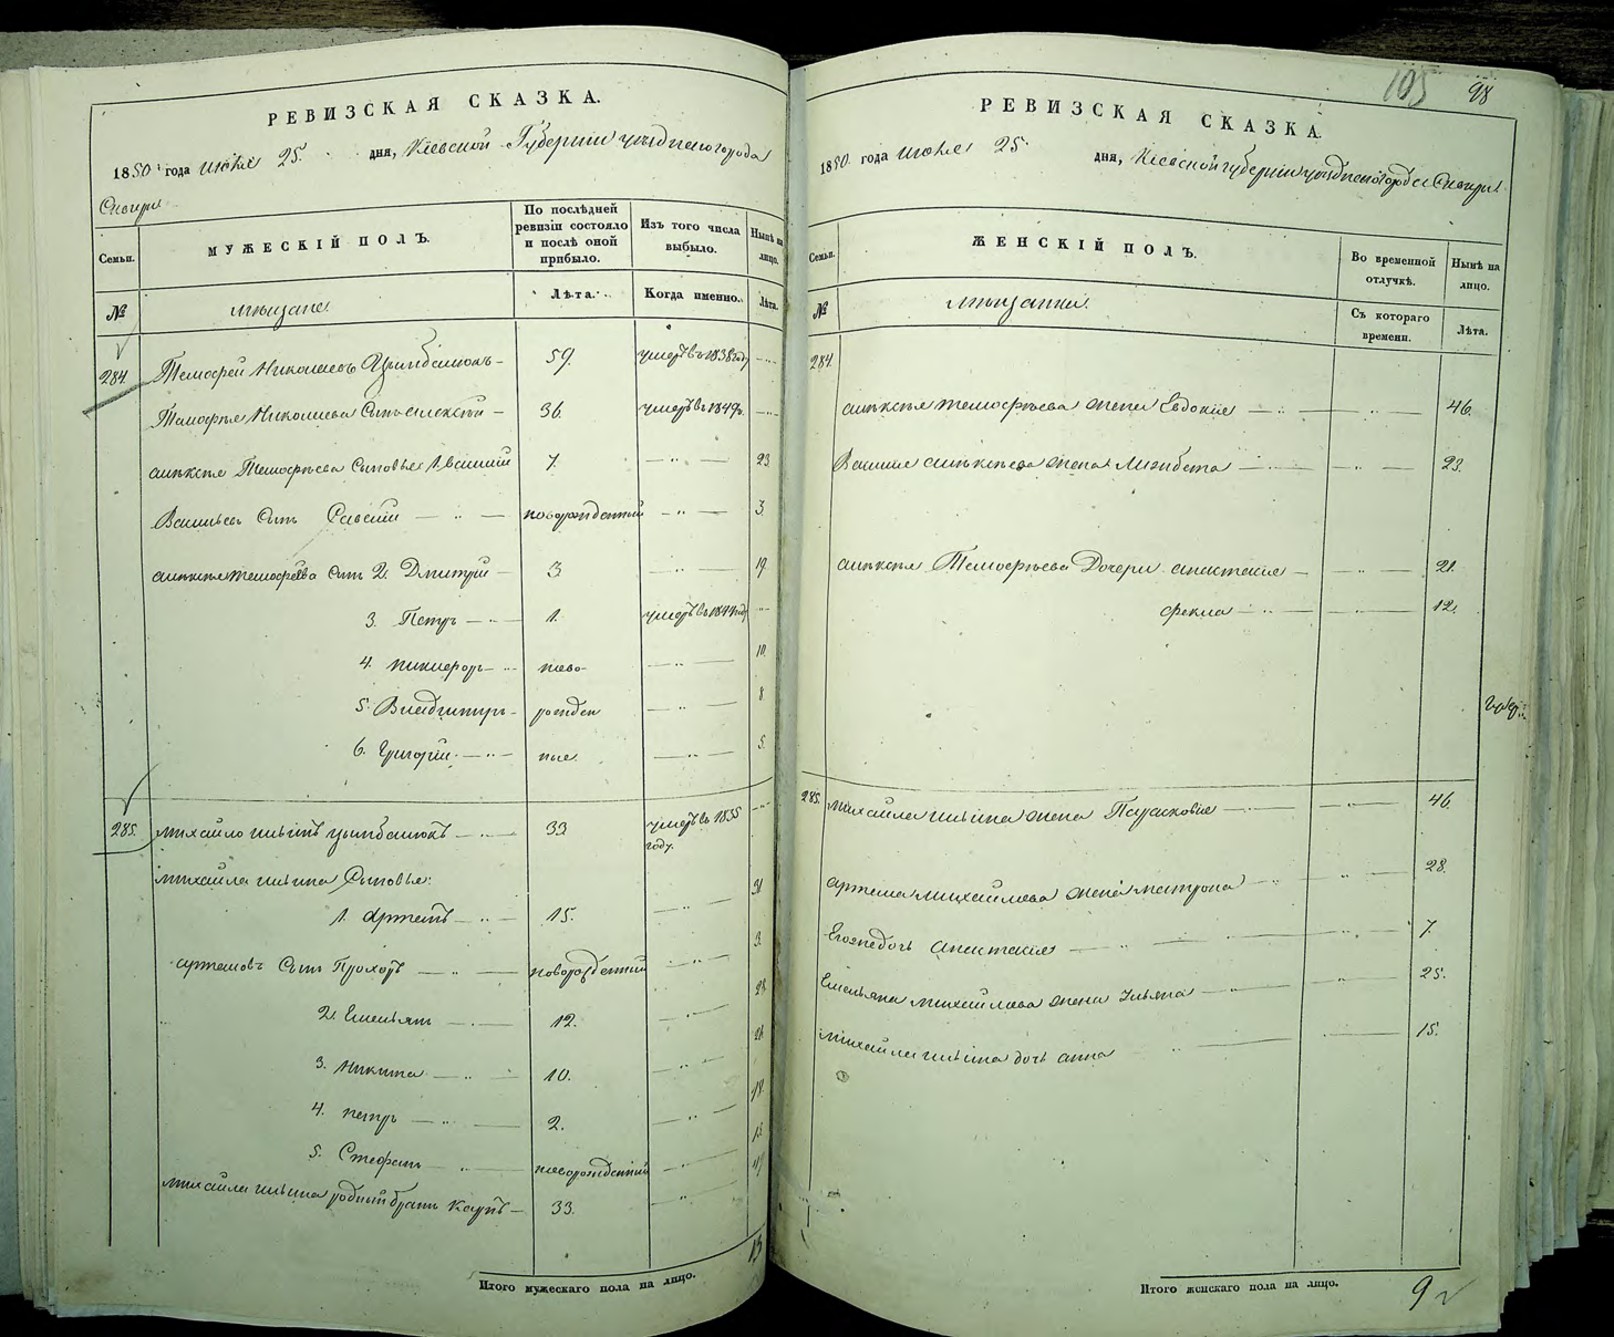 РЕВИЗСКАЯ СКАЗКА.
1850 года июня 25. дня, Кіевской Губерніи уѣзднаго города
Сквиры
Семьи.
МУЖЕСКІЙ ПОЛЪ.
По послѣдней ревизіи состояло и послѣ оной прибыло.
Изъ того числа выбыло.
Нынѣ на лицо.
№
мѣщане.
Лѣта.
Когда именно.
Лѣта.
284. Тимофей Николаевъ Цымбалюкъ — 59. умеръ въ 1838 году ----
Тимофея Николаева Сынъ Алексѣй — 36. умеръ въ 1849 г. ----
Алексѣя Тимофѣева Сыновья 1. Василій 7. — " — 23
Васильевъ Сынъ Савелій — " — новорожденный — " — 3.
Алексѣя Тимофѣева Сынъ 2. Дмитрій — 3 — " — 19
3. Петръ — " — 1. умеръ въ 1844 году ---
4. Никифоръ — " — ново- — " — 10.
5. Владимиръ — рожден — " — 8
6. Григорій — " — ные. — " — 5.
285. Михайло Ильинъ Цымбалюкъ — " — 33 умеръ въ 1835 ---
году.
Михайла Ильина Сыновья:
1. Артемъ — " — 15. — " — 31
Артемовъ Сынъ Прохоръ — " — новорожденный — " — 3.
2. Емельянъ — " — 12. — " — 28
3. Никита — " — 10. — " — 26
4. Петръ — " — 2. — " — 18.
5. Стефанъ — " — новорожденный — " — 13
Михайла Ильина родный братъ Карпъ — 33. — " — 49
13
Итого мужескаго пола на лицо.
105 98
РЕВИЗСКАЯ СКАЗКА.
1850. года июня 25. дня, Кіевской губерніи уѣзднаго города Сквиры.
Семьи.
ЖЕНСКІЙ ПОЛЪ.
Во временной отлучкѣ.
Нынѣ на лицо.
№
мѣщанки.
Съ котораго времени.
Лѣта.
284.
Алексѣя Тимофѣева жена Евдокія — " — " — 46.
Василия Алексѣева жена Лизавета — " — " — 23.
Алексѣя Тимофѣева Дочери Анастасія — " — 21.
Фекла — " — " — 12.
285. Михайла Ильина жена Парасковія — " — " — 46.
Артема Михайлова жена Матрона — " — " — 28.
Егоже дочь Анастасія — " — " — 7.
Емельяна Михайлова жена Ульяна — " — " — 25.
Михайла Ильина дочь Анна — " — 15.
Итого женскаго пола на лицо. 9